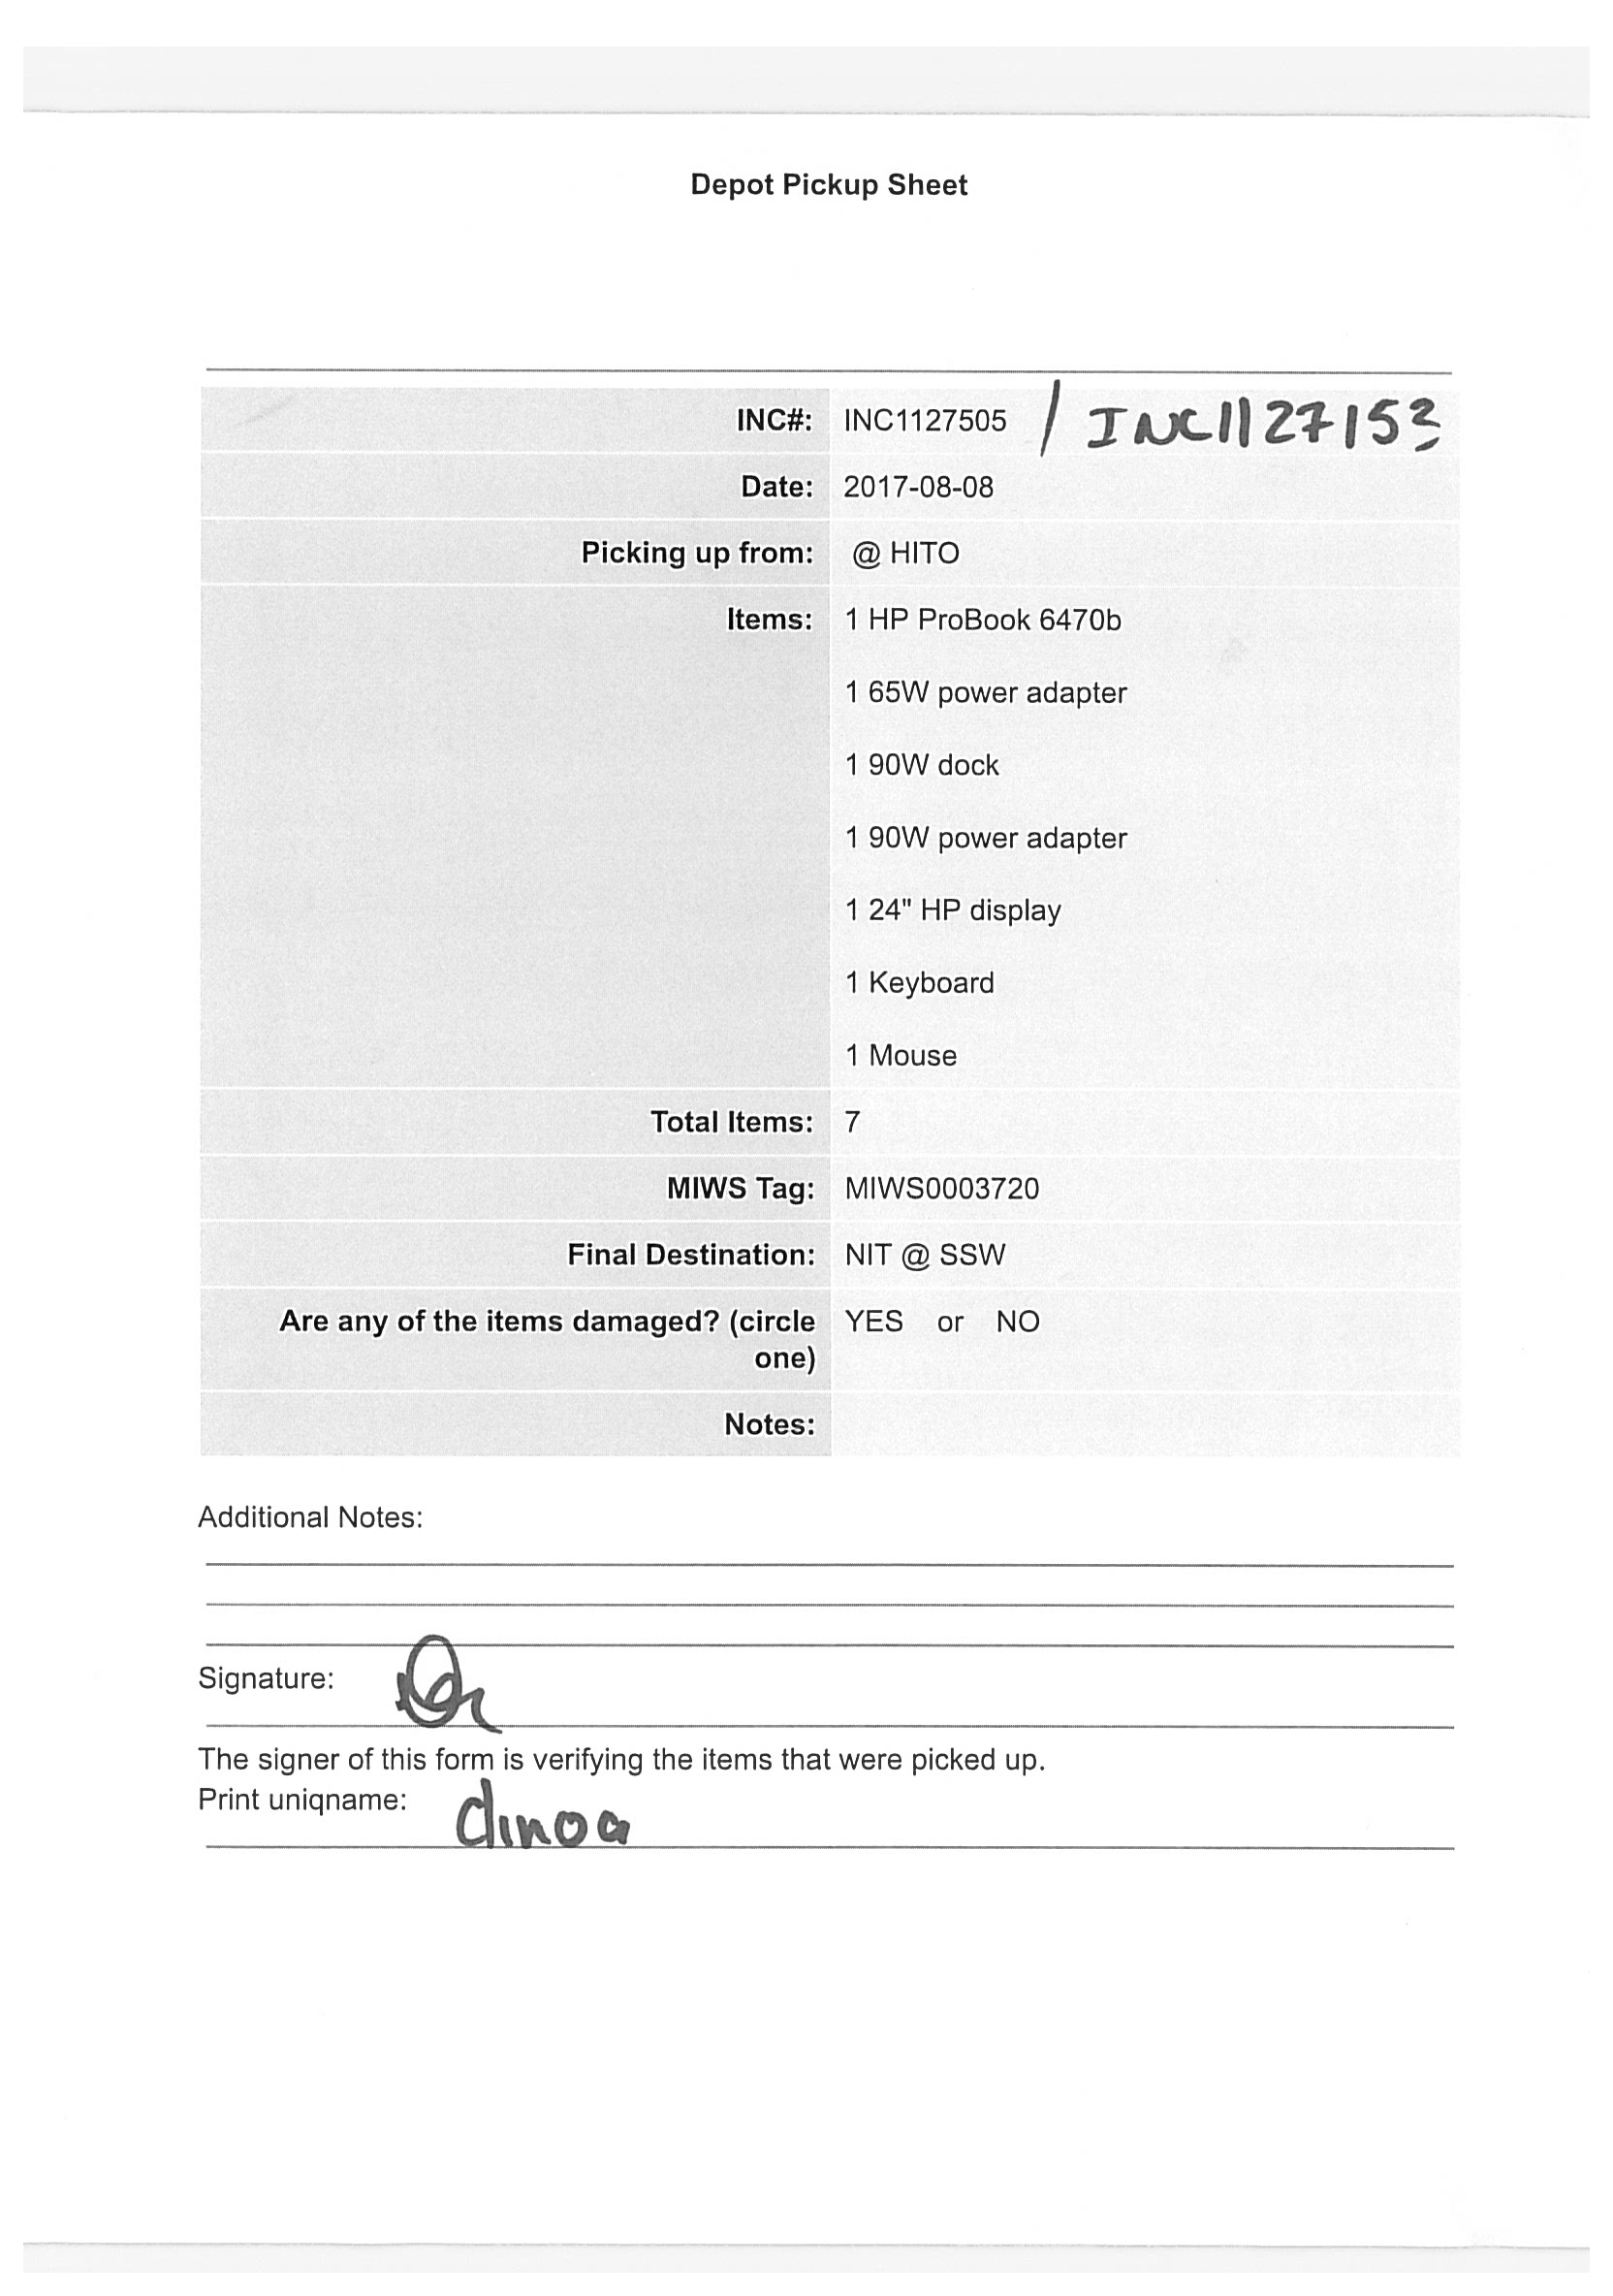 Depot Pickup Sheet
INC#: INC1127505 / INC1127153
Date: 2017-08-08
Picking up from: @ HITO
Items: 1 HP ProBook 6470b
1 65W power adapter
1 90W dock
1 90W power adapter
1 24" HP display
1 Keyboard
1 Mouse
Total Items: 7
MIWS Tag: MIWS0003720
Final Destination: NIT @ SSW
Are any of the items damaged? (circle YES or NO
one)
Notes:
Additional Notes:
Signature:
The signer of this form is verifying the items that were picked up.
Print uniqname: dinoa